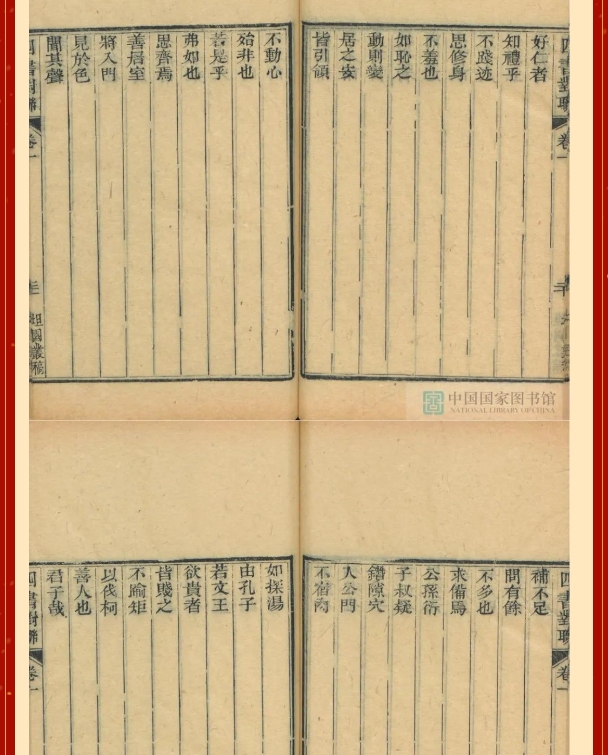 四書對聯 卷一
好仁者
知禮乎
不踐迹
思修身
不羞也
如恥之
動則變
居之安
皆引領
不動心
殆非也
若是乎
弗如也
思齊焉
善居室
將入門
見於色
聞其聲
四書對聯 卷一
中国国家图书馆
NATIONAL LIBRARY OF CHINA
四書對聯 卷一
補不足
問有餘
不多也
求備焉
公孫衍
子叔疑
鑽隙穴
入公門
不宿肉
如探湯
由孔子
若文王
欲貴者
皆賤之
不踰矩
以伐柯
善人也
君子哉
四書對聯 卷一